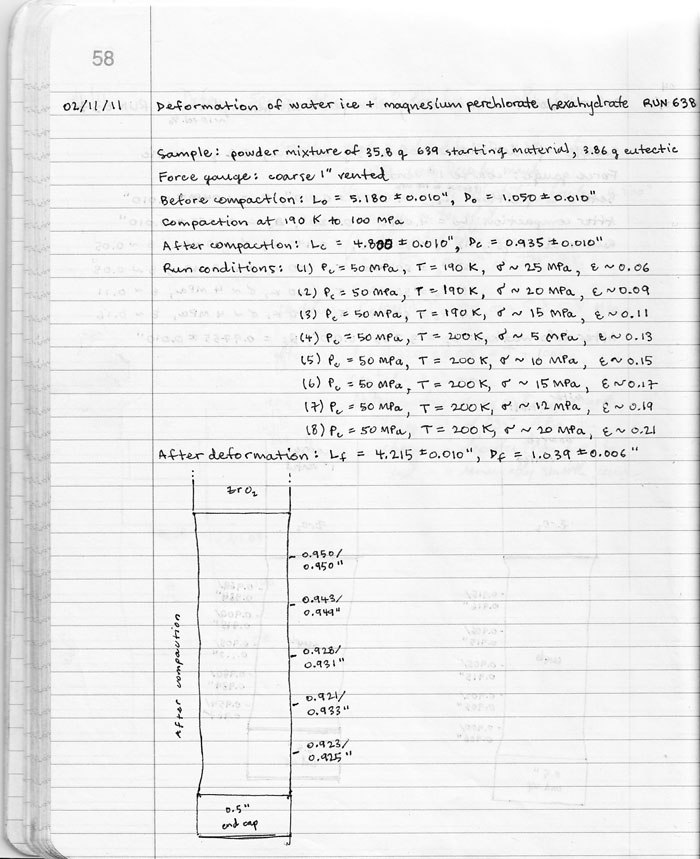 58
02/11/11 Deformation of water ice + magnesium perchlorate hexahydrate RUN 638
Sample: powder mixture of 35.8 g 639 starting material, 3.86 g eutectic
Force gauge: coarse 1" vented
Before compaction: L₀ = 5.180 ± 0.010", D₀ = 1.050 ± 0.010"
Compaction at 190 K to 100 MPa
After compaction: Lc = 4.800 ± 0.010", Dc = 0.935 ± 0.010"
Run conditions: (1) Pc = 50 MPa, T = 190 K, σ ~ 25 MPa, ε ~ 0.06
(2) Pc = 50 MPa, T = 190 K, σ ~ 20 MPa, ε ~ 0.09
(3) Pc = 50 MPa, T = 190 K, σ ~ 15 MPa, ε ~ 0.11
(4) Pc = 50 MPa, T = 200 K, σ ~ 5 MPa, ε ~ 0.13
(5) Pc = 50 MPa, T = 200 K, σ ~ 10 MPa, ε ~ 0.15
(6) Pc = 50 MPa, T = 200 K, σ ~ 15 MPa, ε ~ 0.17
(7) Pc = 50 MPa, T = 200 K, σ ~ 12 MPa, ε ~ 0.19
(8) Pc = 50 MPa, T = 200 K, σ ~ 20 MPa, ε ~ 0.21
After deformation: Lf = 4.215 ± 0.010", Df = 1.039 ± 0.006"
ZrO₂
0.950/
0.950"
0.943/
0.949"
0.928/
0.931"
0.921/
0.933"
0.923/
0.925"
After compaction
0.5"
end cap